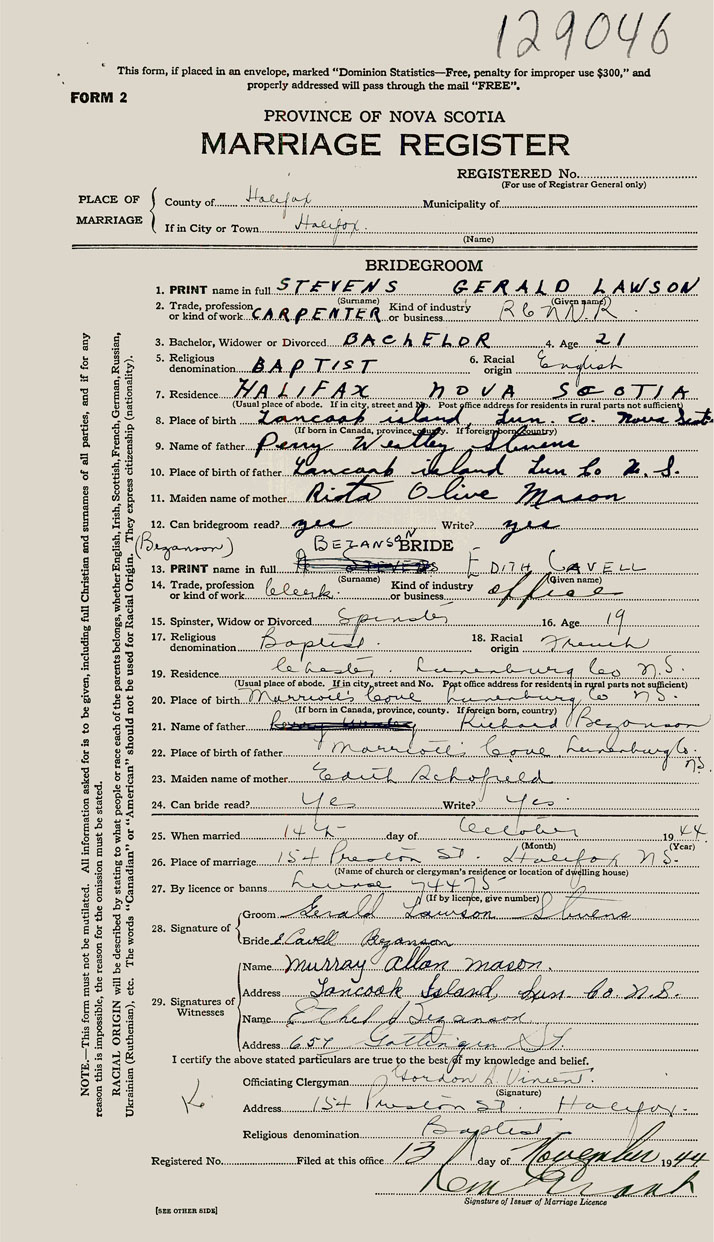 129046
This form, if placed in an envelope, marked “Dominion Statistics—Free, penalty for improper use $300,” and
properly addressed will pass through the mail “FREE”.
FORM 2
PROVINCE OF NOVA SCOTIA
MARRIAGE REGISTER
REGISTERED No.
(For use of Registrar General only)
PLACE OF MARRIAGE
County of Halifax Municipality of
If in City or Town Halifax.
(Name)
BRIDEGROOM
1. PRINT name in full STEVENS GERALD LAWSON
(Surname) (Given name)
2. Trade, profession or kind of work CARPENTER Kind of industry or business
3. Bachelor, Widower or Divorced BACHELOR 4. Age 21
5. Religious denomination BAPTIST 6. Racial origin English
7. Residence HALIFAX NOVA SCOTIA
(Usual place of abode. If in city, street and No. Post office address for residents in rural parts not sufficient)
8. Place of birth Tancook island, Lun. Co. Nova Scot
(If born in Canada, province, county. If foreign born, country)
9. Name of father Perry Westley Stevens
10. Place of birth of father Tancook island Lun Co N.S.
11. Maiden name of mother Rista Olive Mason
12. Can bridegroom read? yes Write? yes
(Bezanson) BEZANSON
BRIDE
13. PRINT name in full STEVENS EDITH CAVELL
(Surname) (Given name)
14. Trade, profession or kind of work Clerk. Kind of industry or business office
15. Spinster, Widow or Divorced Spinster 16. Age 19
17. Religious denomination Baptist. 18. Racial origin French
19. Residence Chester Lunenburg Co N.S.
(Usual place of abode. If in city, street and No. Post office address for residents in rural parts not sufficient)
20. Place of birth Marriott's Cove Lunenburg Co N.S.
(If born in Canada, province, county. If foreign born, country)
21. Name of father Richard Bezanson
22. Place of birth of father Marriott's Cove Lunenburg Co. N.S.
23. Maiden name of mother Edith Schofield
24. Can bride read? Yes Write? Yes.
25. When married 14th day of October 1944.
(Month) (Year)
26. Place of marriage 154 Preston St. Halifax N.S.
(Name of church or clergyman's residence or location of dwelling house)
27. By licence or banns License 74475
(If by licence, give number)
28. Signature of
Groom Gerald Lawson Stevens
Bride E Cavell Bezanson
29. Signatures of Witnesses
Name Murray Allan Mason.
Address Tancook Island, Lun. Co. N.S.
Name Ethel Bezanson
Address 657 Gottingen St.
I certify the above stated particulars are true to the best of my knowledge and belief.
Officiating Clergyman Gordon Vincent.
(Signature)
Address 154 Preston St. Halifax.
Religious denomination Baptist
Registered No. Filed at this office 13 day of November 1944
Signature of Issuer of Marriage Licence
[SEE OTHER SIDE]
NOTE.—This form must not be mutilated. All information asked for is to be given, including full Christian and surnames of all parties, and if for any
reason this is impossible, the reason for the omission must be stated.
RACIAL ORIGIN will be described by stating to what people or race each of the parents belongs, whether English, Irish, Scottish, French, German, Russian,
Ukrainian (Ruthenian), etc. The words “Canadian” or “American” should not be used for Racial Origin. They express citizenship (nationality).